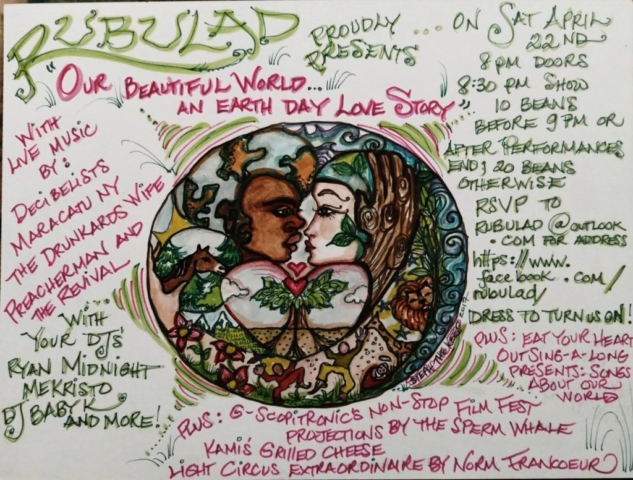 RUBULAD
PROUDLY
PRESENTS ...
"OUR BEAUTIFUL WORLD...
AN EARTH DAY LOVE STORY"
ON SAT APRIL
22ND
8PM DOORS
8:30 PM SHOW
10 BEANS
BEFORE 9PM OR
AFTER PERFORMANCES
END; 20 BEANS
OTHERWISE
RSVP TO
RUBULAD@OUTLOOK
.COM FOR ADDRESS
https://www.
facebook.com/
rubulad/
DRESS TO TURN US ON!
PLUS: EAT YOUR HEART
OUT SING-A-LONG
PRESENTS: SONGS
ABOUT OUR
WORLD
WITH
LIVE MUSIC
BY:
DECIBELISTS
MARACATU NY
THE DRUNKARDS WIFE
PREACHERMAN AND
THE REVIVAL
WITH
YOUR DJ'S
RYAN MIDNIGHT
MEKRISTO
DJ BABY K
AND MORE!
PLUS: G-SCOPITRONICS NON-STOP FILM FEST
PROJECTIONS BY THE SPERM WHALE
KAMI'S GRILLED CHEESE
LIGHT CIRCUS EXTRAORDINAIRE BY NORM FRANCOEUR